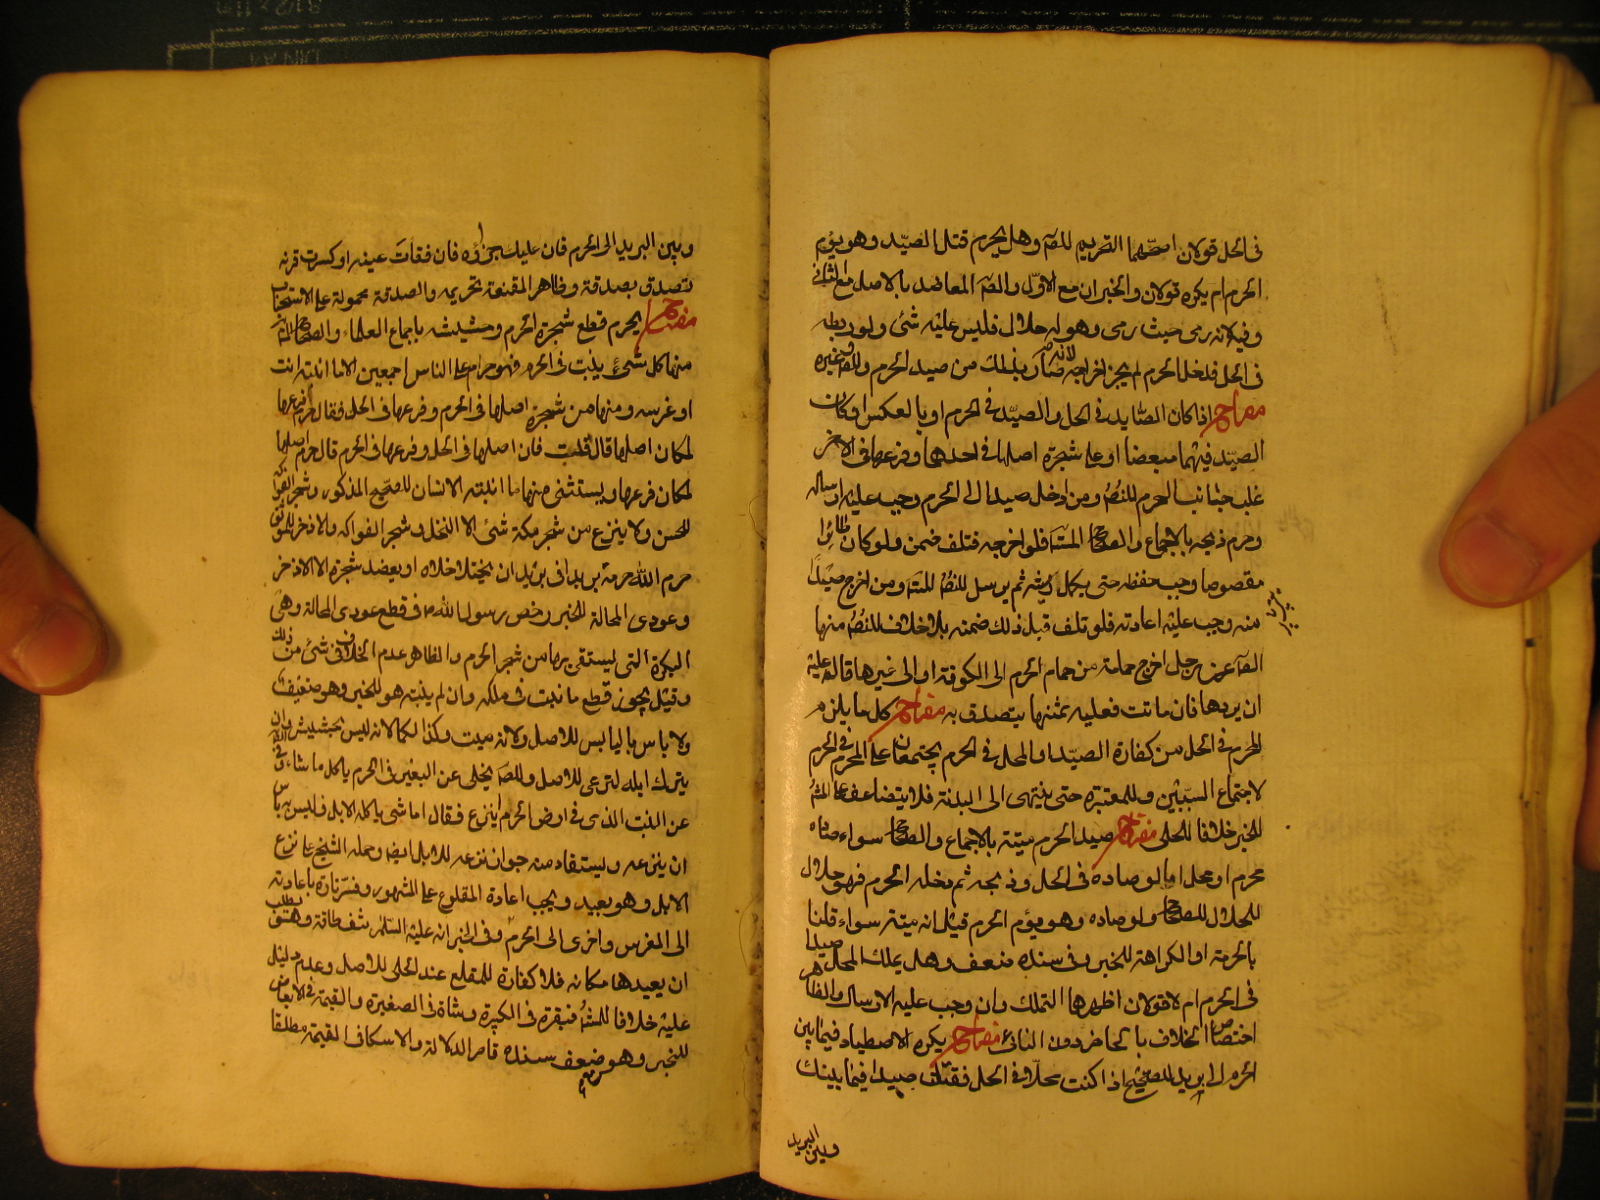 في الحل قولان اصحهما التحريم للصحيح وهل يحرم قتل الصيد وهو يؤم
الحرم ام يكره قولان والخبران مع الاول والصحيح المعاضد بالاصل مع الثاني
وفيه لانه رمى حيث رمى وهو له حلال فليس عليه شئ ولو ربطه
في الحل فدخل الحرم لم يجز اخراجه لانه صار بذلك من صيد الحرم وللخبر وغيره
مفتاح اذا كان الصايد في الحل والصيد في الحرم او بالعكس او كان
الصيد فيهما مبعضا او على شجرة اصلها في احدهما وفرعها في الاخر
غلب جانب الحرم للنصوص ومن ادخل صيدا الى الحرم وجب عليه ارساله
وحرم ذبحه بالاجماع والصحاح المستفيضة فلو اخرجه فتلف ضمن ولو كان طائرا
مقصوصا وجب حفظه حتى يكمل ريشه ثم يرسل للنصوص المستفيضة ومن اخرج صيدا
منه وجب عليه اعادته فلو تلف قبل ذلك ضمنه بلا خلاف للنصوص منها
الصحيح عن رجل اخرج حمامة من حمام الحرم الى الكوفة او الى غيرها قال عليه
ان يردها فان ماتت فعليه ثمنها يتصدق به مفتاح كل ما يلزم
المحرم في الحل من كفارة الصيد او المحل في الحرم يجتمعان على المحرم في الحرم
لاجتماع السببين وللمعتبرة حتى ينتهى الى البدنة فلا يتضاعف على المشهور
للخبر خلافا للحلى مفتاح صيد الحرم ميتة بالاجماع والصحاح سواء صاده
محرم او محل اما لو صاده في الحل وذبحه ثم دخله الحرم فهو حلال
للمحلال للصحاح ولو صاده وهو يؤم الحرم قيل انه ميتة سواء قلنا
بالحرمة او الكراهة للخبر وفي سنده ضعف وهل يملك المحل صيدا
في الحرم ام لا قولان اظهرهما التملك وان وجب عليه الارسال والظاهر
اختصاص الخلاف بالحاضر دون النائى مفتاح يكره الاصطياد فيما بين
الحرم الى بريد للصحيح اذا كنت محلا في الحل فقتلت صيدا فيما بينك
وبين البريد
وبين البريد الى الحرم فان عليك جزاؤه فان فقأت عينه او كسرت قرنه
تصدق بصدقة وظاهر المقنعة تحريمه والصدقة محمولة على الاستحباب
مفتاح يحرم قطع شجرة الحرم وحشيشه باجماع العلماء والصحاح
منها كل شئ ينبت في الحرم فهو حرام على الناس اجمعين الا ما انبته انت
او غرسه ومنها من شجرة اصلها في الحرم وفرعها في الحل فقال حرم فرعها
لمكان اصلها قال قلت فان اصلها في الحل وفرعها في الحرم قال حرم اصلها
لمكان فرعها ويستثنى منها ما انبته الانسان للصحيح المذكور وشجر الفواكه
للحسن ولا ينزع من شجر مكة شئ الا النخل وشجر الفواكه والاذخر للموثق
حرم الله حرمه بريدا في بريد ان يختلا خلاه او يعضد شجره الا الاذخر
وعودى المحالة للخبر رخص رسول الله ص في قطع عودى المحالة وهي
البكرة التى يستقى بها من شجر الحرم والظاهر عدم الخلاف في شئ من ذلك
وقيل يجوز قطع ما نبت في ملكه وان لم ينبته هو للخبر وهو ضعيف
ولا باس باليابس للاصل ولانه ميت وكذا الكما لانه ليس بحشيش وان
يترك ابله لترعى للاصل وللصحيح يخلى عن البعير في الحرم ياكل ما شاء وفي
عن النبت الذى في ارض الحرم اينزع فقال اما شئ ياكله الابل فليس به باس
ان ينزعه ويستفاد منه جواز نزعه للابل ايضا وحمله الشيخ على نزع
الابل وهو بعيد ويجب اعادة المقلوع على المشهور وفسر تارة باعادته
الى المغرس واخرى الى الحرم وفى الخبر انه عليه السلام نتف طاقة وهو يطلب
ان يعيدها مكانه فلا كفارة للمقلع عند الحلى للاصل وعدم دليل
عليه خلافا للمشهور فبقرة في الكبيرة وشاة في الصغيرة والقيمة في الابعاض
للخبر وهو ضعف سنده قاصر الدلالة والاسكافى القيمة مطلقا